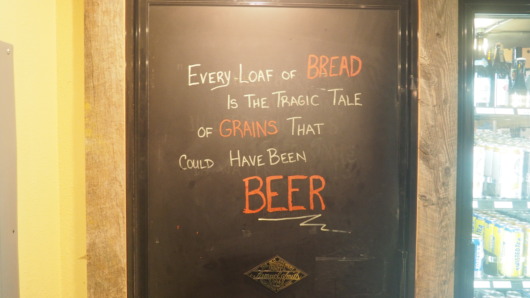 Every Loaf of BREAD
Is The Tragic Tale
of GRAINS That
Could Have Been
BEER